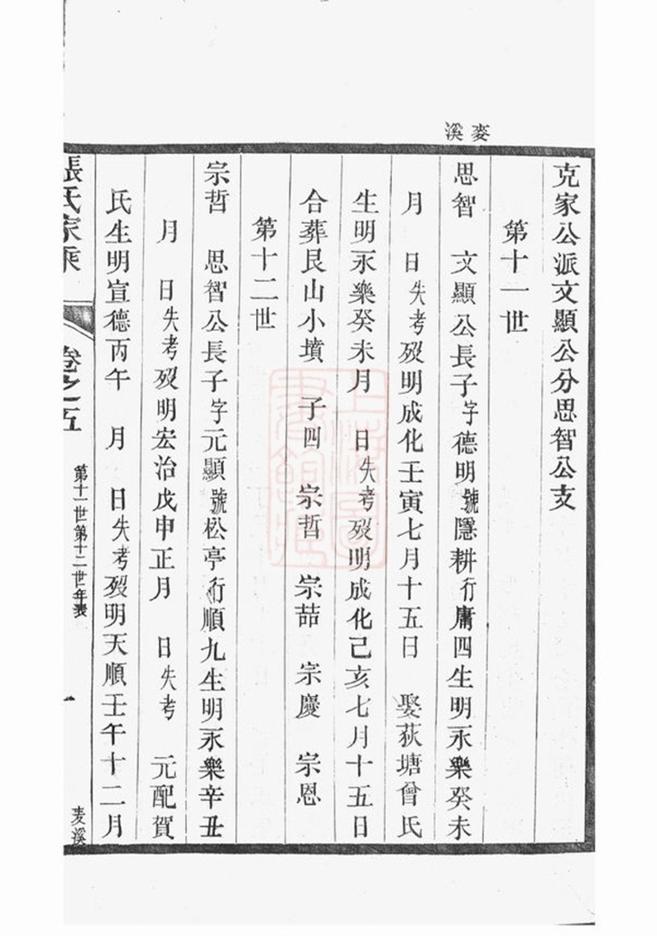 麥溪
克家公派文顯公分思智公支
第十一世
思智　文顯公長子字德明號隱耕行庸四生明永樂癸未
月　日失考歿明成化壬寅七月十五日　娶荻塘曾氏
生明永樂癸未月　日失考歿明成化己亥七月十五日
合葬艮山小墳　子四　宗哲　宗喆　宗慶　宗恩
第十二世
宗哲　思智公長子字元顯號松亭行順九生明永樂辛丑
月　日失考歿明宏治戊申正月　日失考　元配賀
氏生明宣德丙午　月　日失考歿明天順壬午十二月
張氏家乘　卷之五　第十一世第十二世年表　一　麦溪